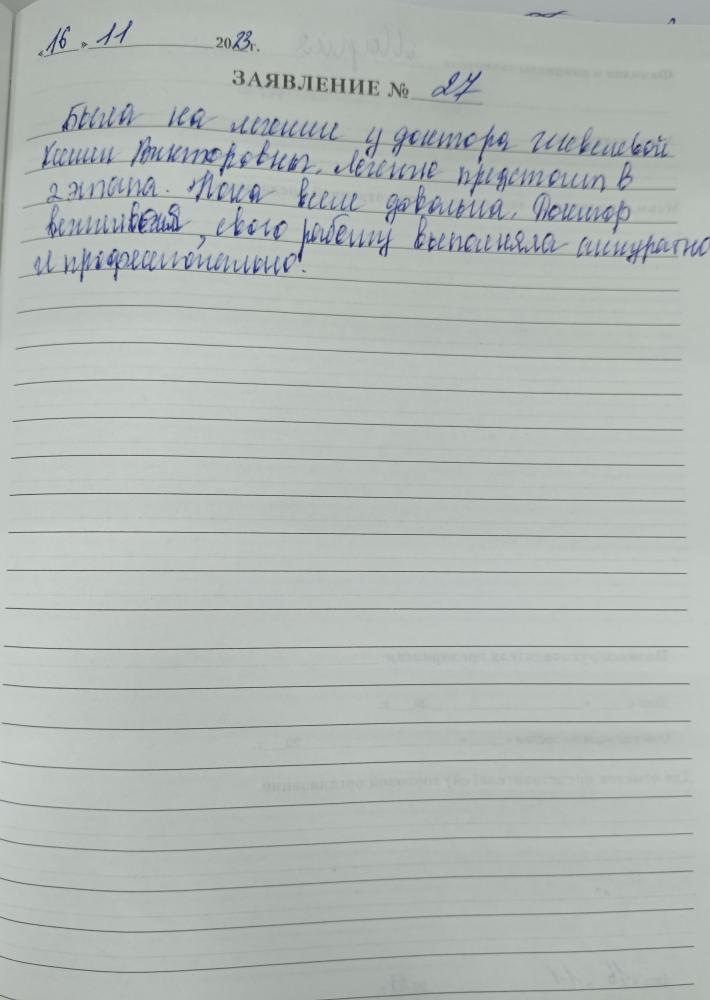 «16» 11 2023г.
ЗАЯВЛЕНИЕ № 27
Была на лечении у доктора Шевелевой
Ксении Викторовны. Лечение предстоит в
2 этапа. Пока всем довольна. Доктор
вежливая, свою работу выполняла аккуратно
и профессионально.